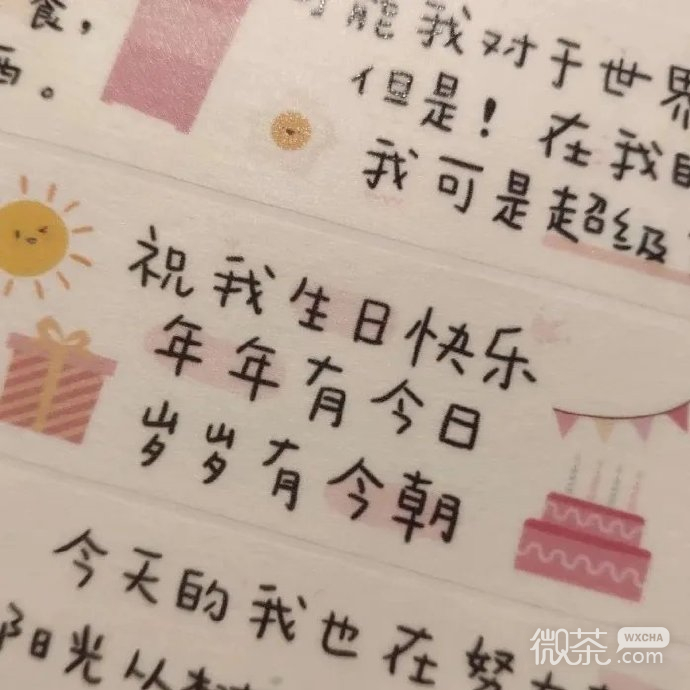 食，
酒。
能我对于世界
但是！在我
我可是超级
祝我生日快乐
年年有今日
岁岁有今朝
今天的我也在努
阳光从
微茶 WXCHA
.com